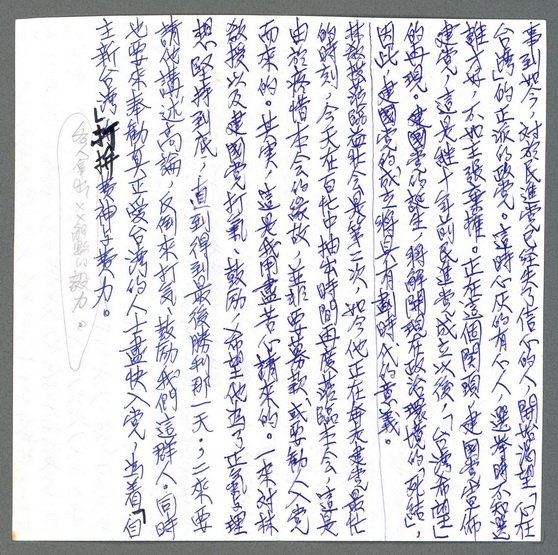 事到如今，對於民進黨已經失了信心的人，開始渴望「心在
台灣」的正派的政黨。這時心灰的有心人，選舉時不知選
誰才好，不如主張棄權。正在這個關頭，建國黨宣佈
建黨，這是繼十年前民進黨成立以後，「台灣希望」
的再現。建國黨的誕生，將解開現在政治環境的「死結」，
因此，建國黨的成立將具有劃時代的意義。
林教授蒞臨益壯會是第二次，如今他正在奔走建黨最忙
的時刻，今天在百忙中抽出時間再度蒞臨本會，這是
由於疼惜本會的緣故，並非要募款，或要勸人入黨
而來的。其實，這是我用盡苦心請來的。一來對林
教授以及建國黨打氣、鼓勵，希望他為了正氣、理
想，堅持到底，直到得到最後勝利那一天。，二來要
請他講述高論，反倒來打氣、鼓勵我們這群人。同時
也要來奉勸真正愛台灣的人士盡快入黨，為着「自
主新台灣」打拼費神費力。